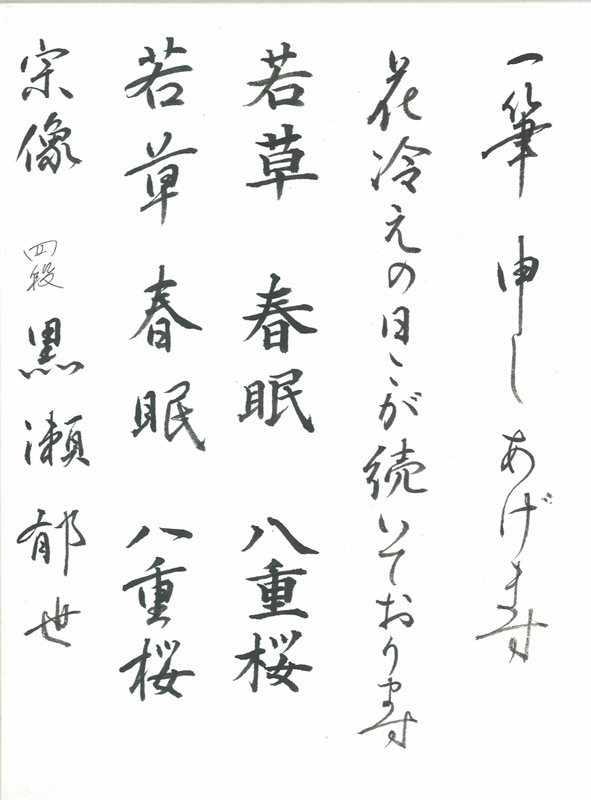 一筆申しあげます
花冷えの日々が続いております
若草 春眠 八重桜
若草 春眠 八重桜
宗像 四段 黒瀬郁世